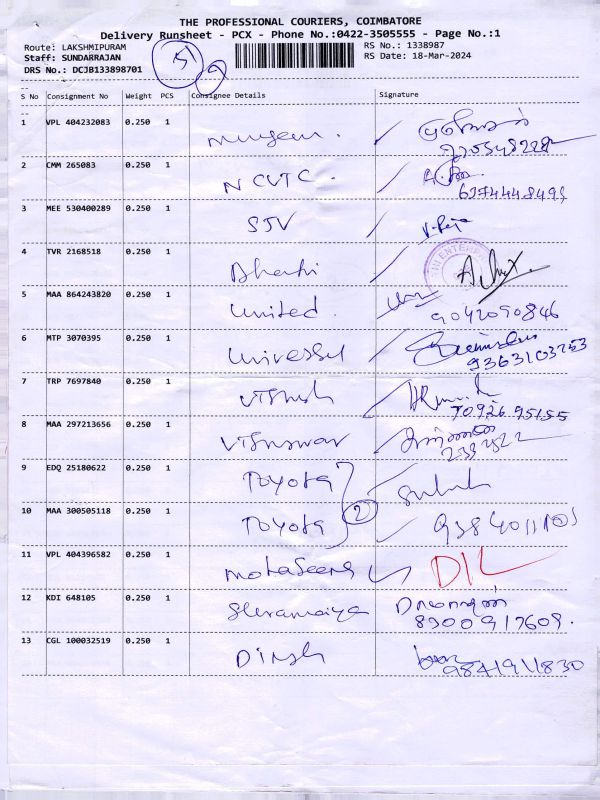 THE PROFESSIONAL COURIERS, COIMBATORE
Delivery Runsheet - PCX - Phone No.:0422-3505555 - Page No.:1
Route: LAKSHMIPURAM RS No.: 1338987
Staff: SUNDARRAJAN RS Date: 18-Mar-2024
DRS No.: DCJB133898701
S No Consignment No Weight PCS Consignee Details Signature
1 VPL 404232083 0.250 1
2 CMM 265083 0.250 1 NCVTC.
6374448494
3 MEE 530400289 0.250 1 SJV
4 TVR 2168518 0.250 1 Bharathi
5 MAA 864243820 0.250 1 United.
9042090846
6 MTP 3070395 0.250 1 Universel
9363103253
7 TRP 7697840 0.250 1
70926 95155
8 MAA 297213656 0.250 1 Vishswar
9 EDQ 25180622 0.250 1 TOYOTA
10 MAA 300505118 0.250 1 TOYOTA 2
11 VPL 404396582 0.250 1 DIL
12 KDI 648105 0.250 1
8300917609.
13 CGL 100032519 0.250 1 Dinsh
9841911830